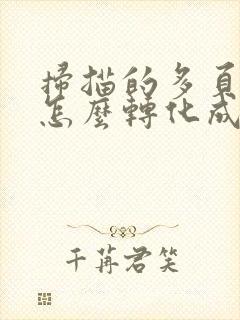 掃描的多頁
怎麼轉化成
千苒君笑